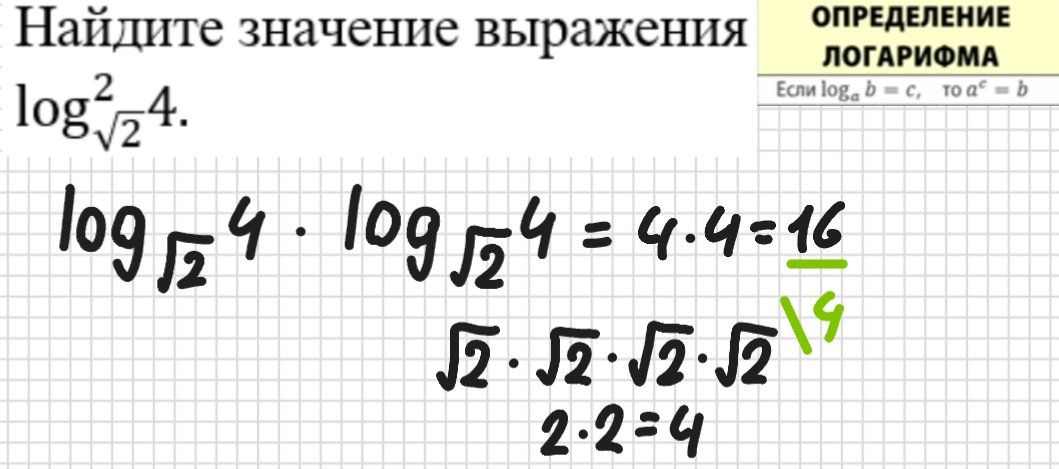 Найдите значение выражения
log²_√2 4.
ОПРЕДЕЛЕНИЕ
ЛОГАРИФМА
Если logₐ b = c, то aᶜ = b
log_√2 4 · log_√2 4 = 4·4=16
\9
√2 · √2 · √2 · √2
2·2=4